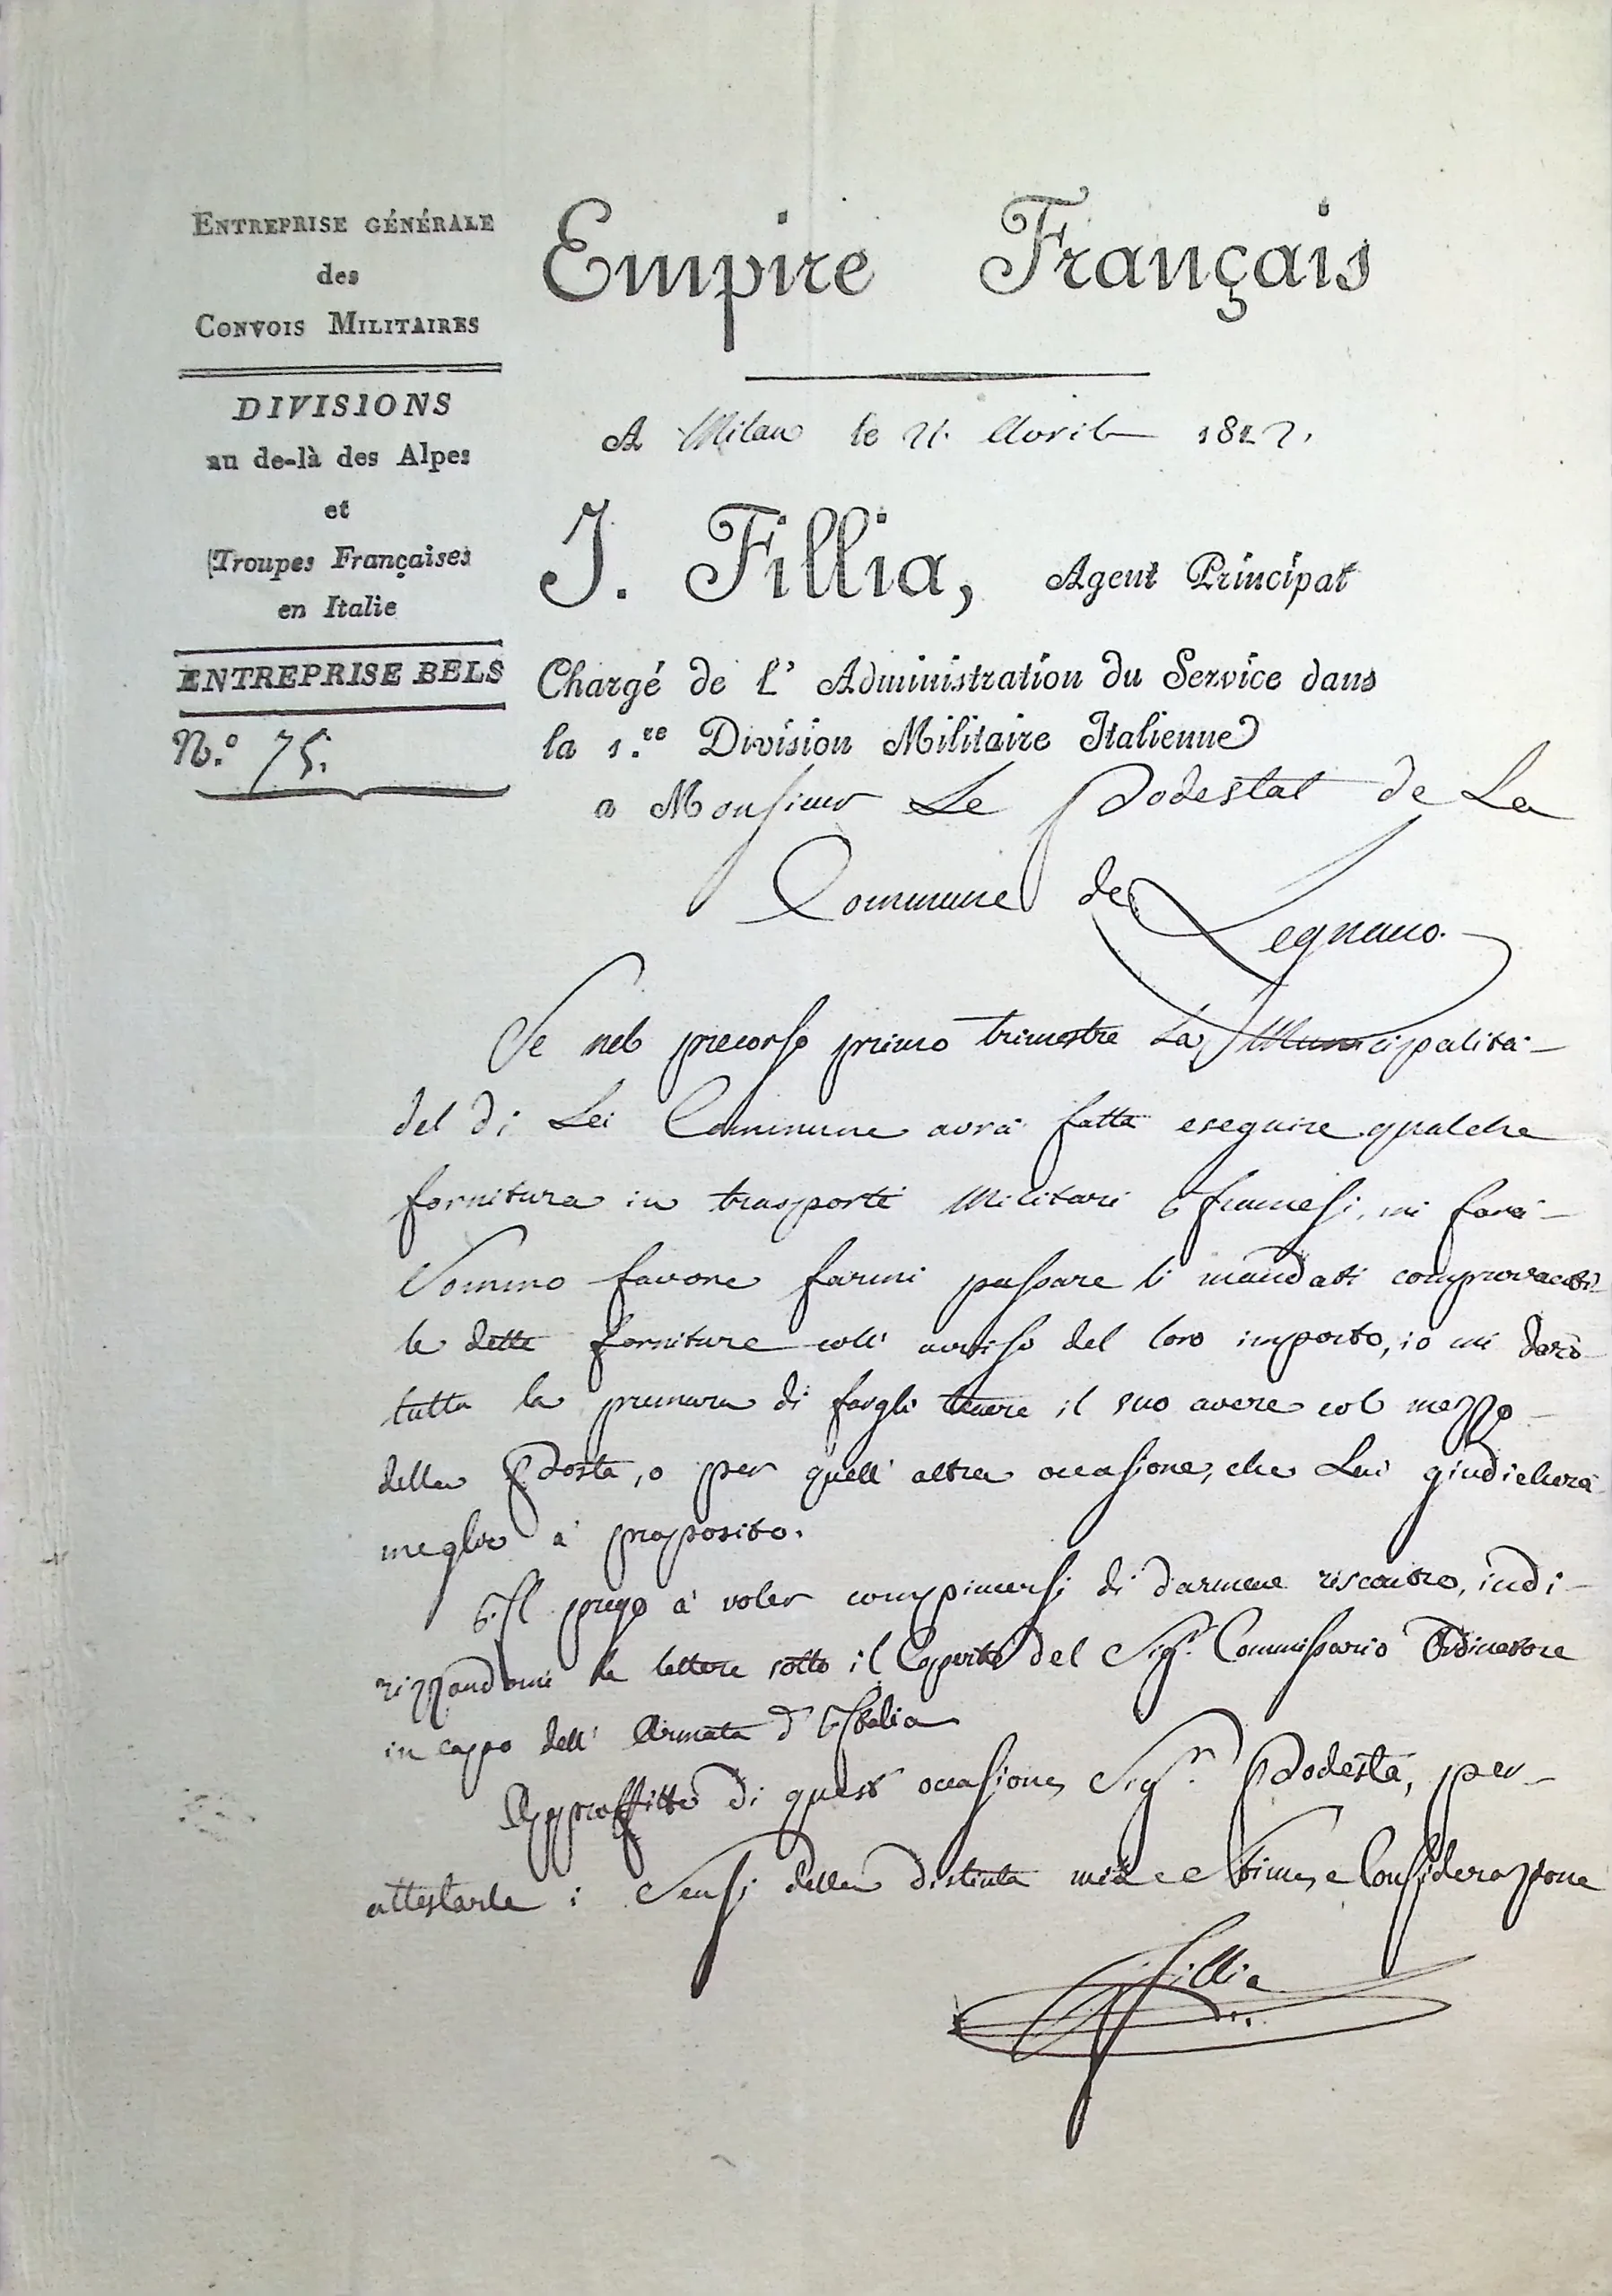 ENTREPRISE GÉNÉRALE
des
CONVOIS MILITAIRES
DIVISIONS
au de-là des Alpes
et
Troupes Françaises
en Italie
ENTREPRISE BELS
N.° 75.
Empire Français
A Milan le 21. Avril 1812.
J. Fillia, Agent Principal
Chargé de l' Administration du Service dans
la 1.re Division Militaire Italienne
a Monsieur Le Podestat de La
Commune de Legnano.
Se nel precorso primo trimestre La Municipalità
del di Lei Commune avrà fatta eseguire qualche
fornitura in trasporti Militari Francesi, mi farà
Sommo favore farmi passare li mandati comprovanti
le dette forniture coll' avviso del loro importo, io mi darò
tutta la premura di fargli tenere il suo avere col mezzo
della Posta, o per quell' altra occasione, che Lei giudicherà
meglio a' proposito.
Il prego a' voler compiacersi di darmene riscontro, indi-
rizzandomi le lettere sotto il Coperto del Sigr. Commissario Ordinatore
in cappo dell' Armata d' Italia
Approffitto di quest occasione, Sigr. Podestà, per
attestarle i Sensi della distinta mia Stima, e Considerazione
Fillia